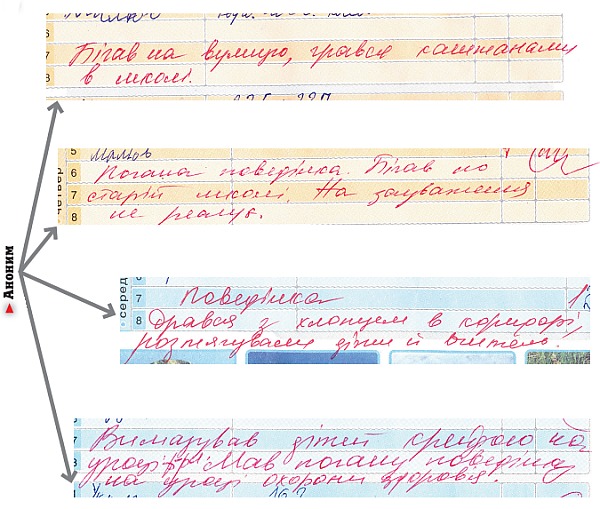 6
7 Бігав на вулицю, грався каштанами
8 в школі.
Аноним
5 Малюв
6 Погана поведінка. Бігав по
7 старій школі. На зауваження
8 не реагує.
четвер
серед
7 Поведінка
8 Дрався з хлопцем в коридорі,
розтягували діти й вчитель.
7 Вимазував дітей крейдою на
8 уроці Мав погану поведінку
на уроці охорони здоров'я.